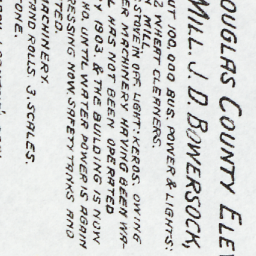 OUGLAS COUNTY ELE
MILL. J. D. BOWERSOCK,
UT 100,000 BUS. POWER & LIGHTS:
2 WHEAT CLEANERS.
N MILL.
STOVE IN OFF. LIGHT: KEROS. OWING
ER MACHINERY HAVING BEEN WA-
L HAS NOT BEEN OPERATED
1903, & THE BUILDING IS NOW
HO. UNTIL WATER POWER IS AGAIN
RESSING NOW. SAFETY TANKS AND
TED.
ACHINERY.
AND ROLLS 3. SCALES.
TONE.